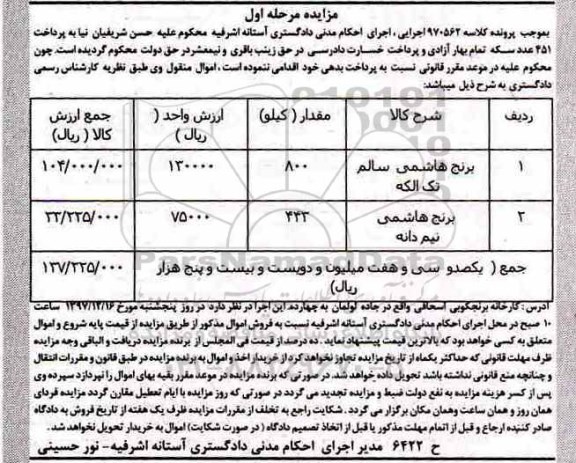 مزایده مرحله اول
بموجب پرونده کلاسه ۹۷۰۵۶۲ اجرایی، اجرای احکام مدنی دادگستری آستانه اشرفیه محکوم علیه حسن شریفیان نیا به پرداخت
۴۵۱ عدد سکه تمام بهار آزادی و پرداخت خسارت دادرسی در حق زینب باقری و نیمعشر در حق دولت محکوم گردیده است. چون
محکوم علیه در موعد مقرر قانونی نسبت به پرداخت بدهی خود اقدامی ننموده است، اموال منقول وی طبق نظریه کارشناس رسمی
دادگستری به شرح ذیل میباشد:
ردیف شرح کالا مقدار (کیلو) ارزش واحد (ریال) جمع ارزش کالا (ریال)
۱ برنج هاشمی سالم تک الکه ۸۰۰ ۱۳۰۰۰۰ ۱۰۴/۰۰۰/۰۰۰
۲ برنج هاشمی نیم دانه ۴۴۳ ۷۵۰۰۰ ۳۳/۲۲۵/۰۰۰
جمع (یکصدو سی و هفت میلیون و دویست و بیست و پنج هزار ریال) ۱۳۷/۲۲۵/۰۰۰
آدرس: کارخانه برنجکوبی اسحاقی واقع در جاده لولمان به چهارده. این اجرا در نظر دارد در روز پنجشنبه مورخ ۱۳۹۷/۱۲/۱۶ ساعت
۱۰ صبح در محل اجرای احکام مدنی دادگستری آستانه اشرفیه نسبت به فروش اموال مذکور از طریق مزایده از قیمت پایه شروع و اموال
متعلق به کسی خواهد بود که بالاترین قیمت پیشنهاد نماید. ده درصد از قیمت فی المجلس از برنده مزایده دریافت و الباقی وجه مزایده
ظرف مهلت قانونی که حداکثر یکماه از تاریخ مزایده تجاوز نخواهد کرد از خریدار اخذ و اموال به برنده مزایده در طبق قانون و مقررات انتقال
و چنانچه منع قانونی نداشته باشد تحویل داده خواهد شد. در صورتی که برنده مزایده در موعد مقرر بقیه بهای اموال را نپردازد سپرده وی
پس از کسر هزینه مزایده به نفع دولت ضبط و مزایده تجدید می گردد در صورتی که روز مزایده با ایام تعطیل مقارن گردد مزایده فردای
همان روز و همان ساعت و همان مکان برگزار می گردد. شکایت راجع به تخلف از مقررات مزایده ظرف یک هفته از تاریخ فروش به دادگاه
صادر کننده ارجاع و قبل از اتمام مهلت مذکور یا قبل از اتخاذ تصمیم دادگاه (در صورت شکایت) اموال به خریدار تحویل نخواهد شد.
ح ۶۴۲۲ مدیر اجرای احکام مدنی دادگستری آستانه اشرفیه- نور حسینی
ParsNamadData